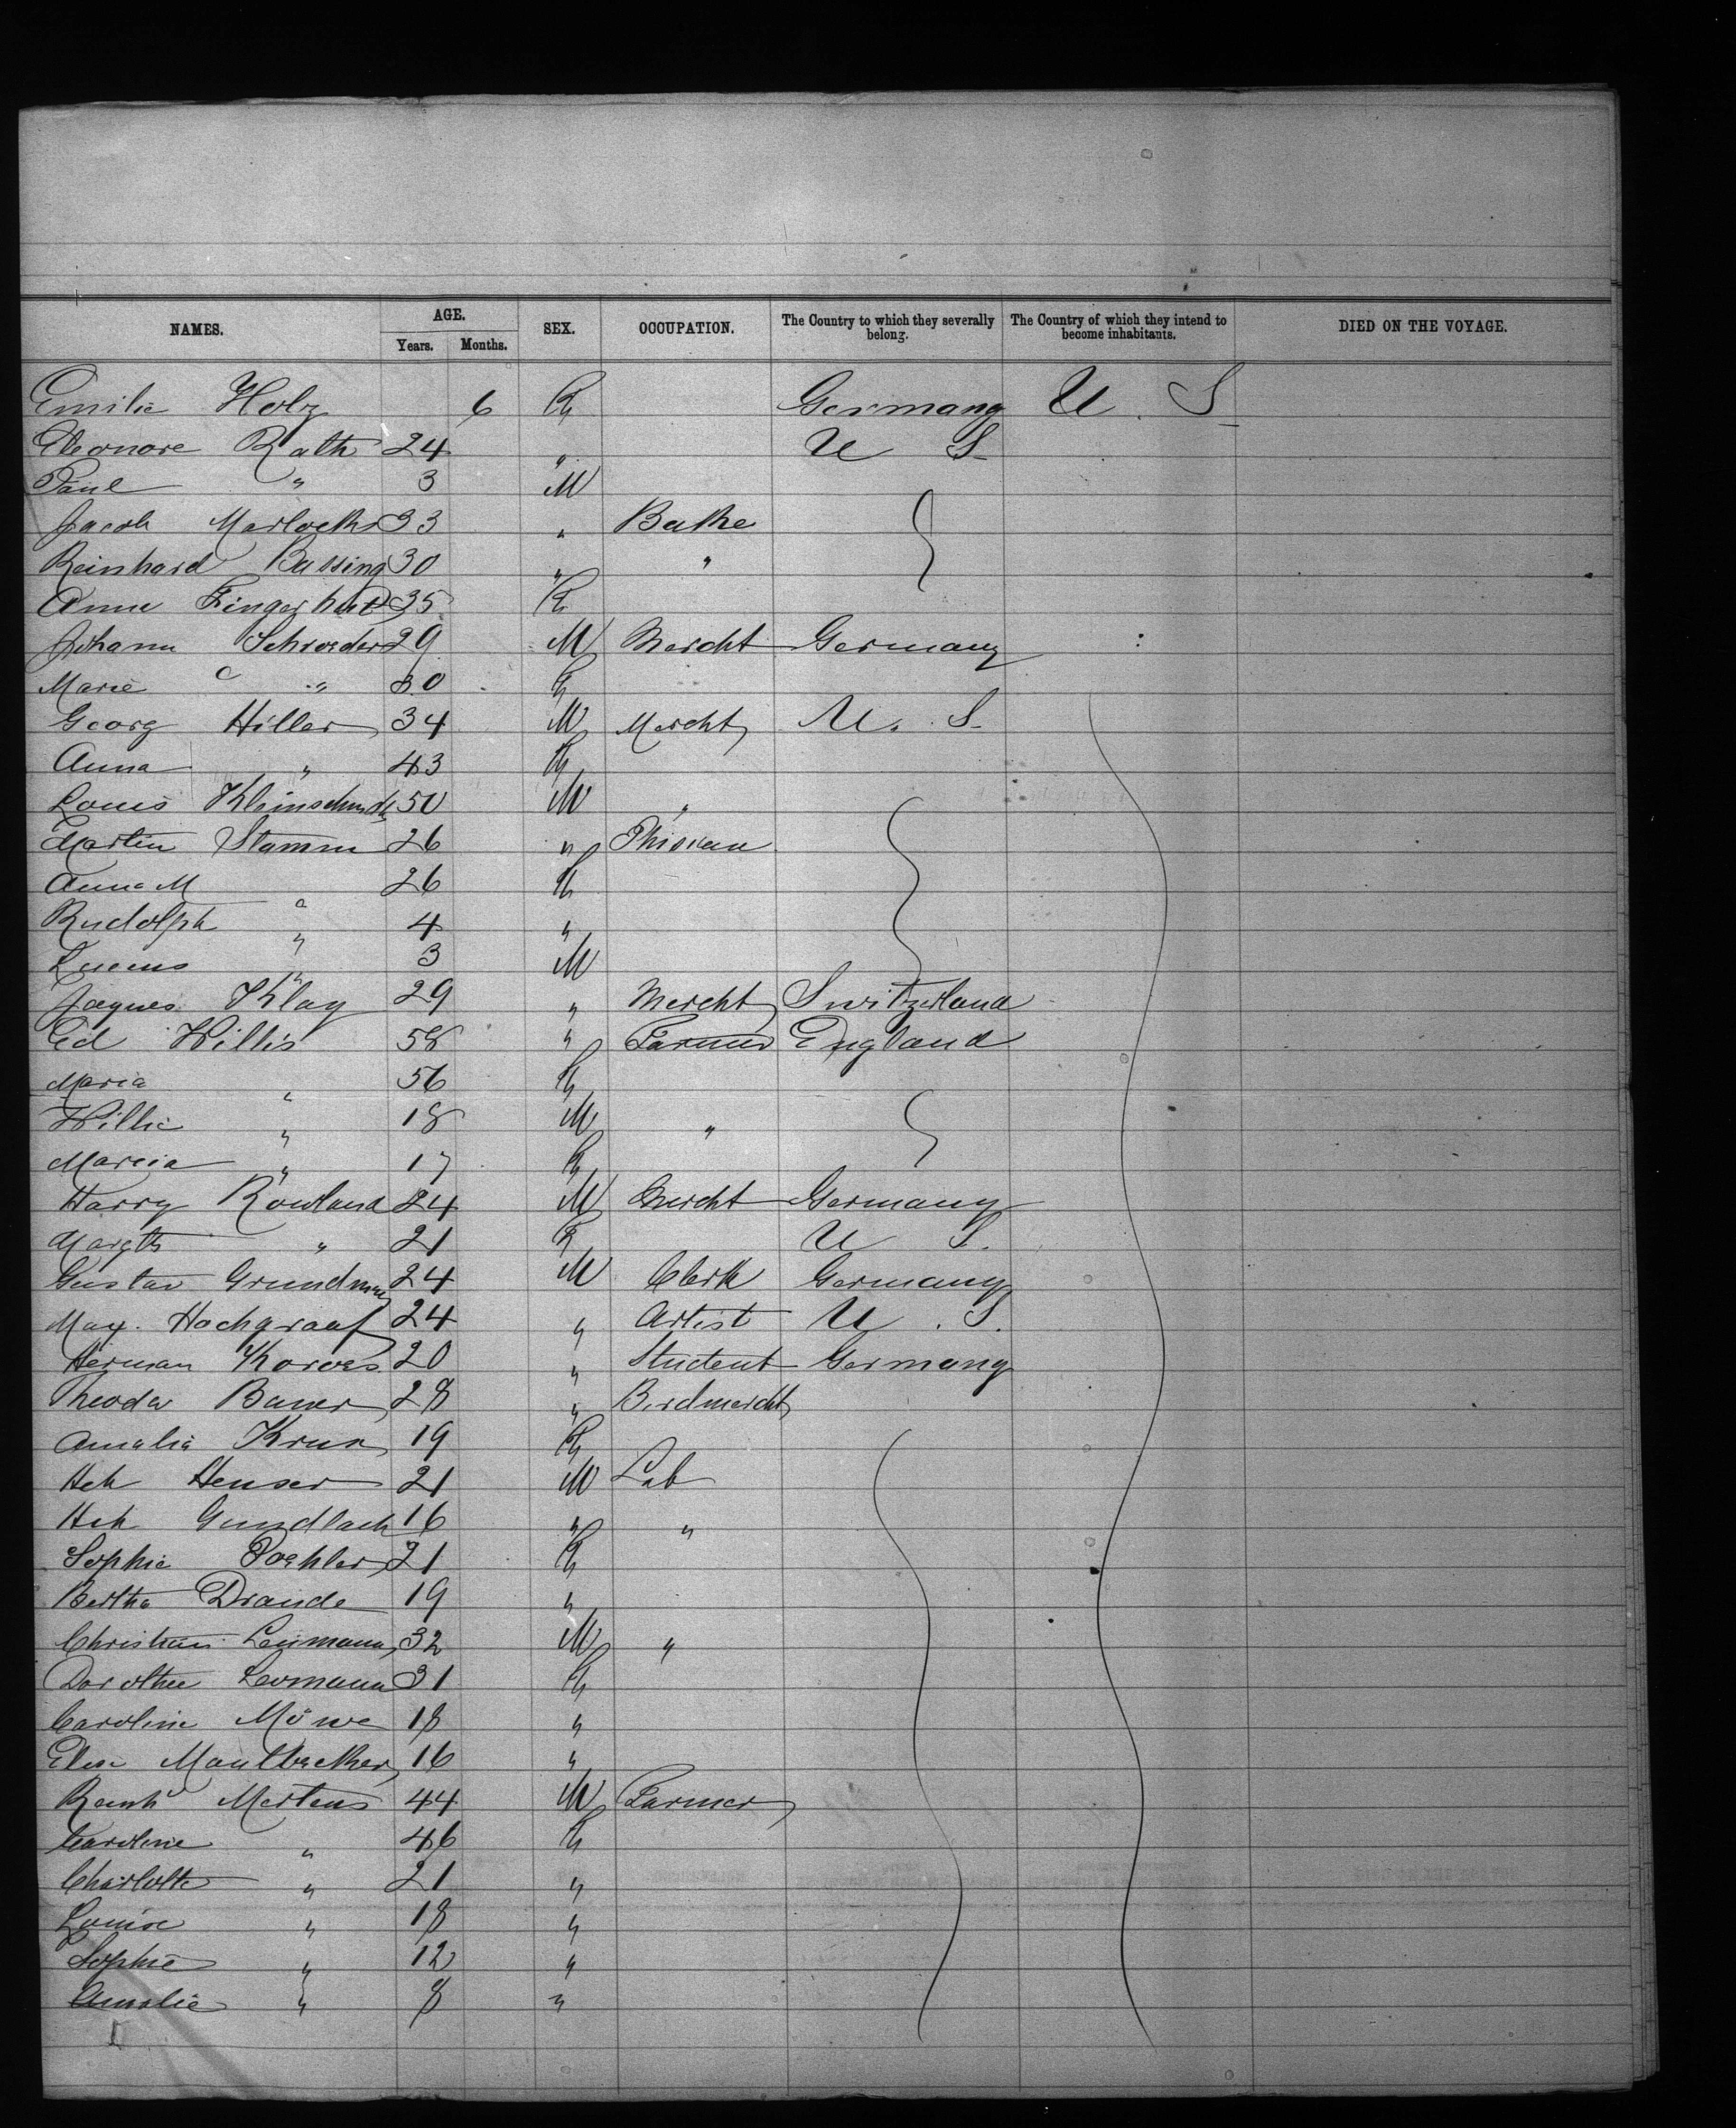 NAMES. AGE. Years. Months. SEX. OCCUPATION. The Country to which they severally belong. The Country of which they intend to become inhabitants. DIED ON THE VOYAGE.
Emilie Holz 6 Germany U. S
Eleonore Rath 24 " U S
Paul " 3 M
Jacob 33 "
Reinhard Bussing 30 " "
Anna Fingerhut 35
Johann Schroeder 29 M Mercht Germany
Marie " 30
Georg Hiller 34 M Mercht U. S.
Anna " 43
Louis Kleinschmidt 50 M "
Martin Stamm 26 "
Anna M " 26
Rudolph " 4 "
" 3 M
Jaques Klay 29 " Mercht Switzerland
Ed Willis 58 " Farmer England
Maria " 56
Willie " 18 M "
" 17
Harry Rowland 24 M Mercht Germany
Margth " 21 U S.
Gustav Grundman 24 M Clerk Germany
Max. Hochgraaf 24 " Artist U. S.
Herman Korves 20 " Student Germany
Theodor Bauer 28 " Birdmercht
Amalia 19
Hch Henser 21 M Lab
Hch Gundlach 16 " "
Sophie Poehler 21
Bertha Drande 19 "
Christian 32 M "
Dorothee 31
Caroline Möwe 18 "
16 "
Mertens 44 M Farmer
Caroline " 46
Charlotte " 21 "
Louise " 18 "
Sophie " 12 "
Amalie " 8 "